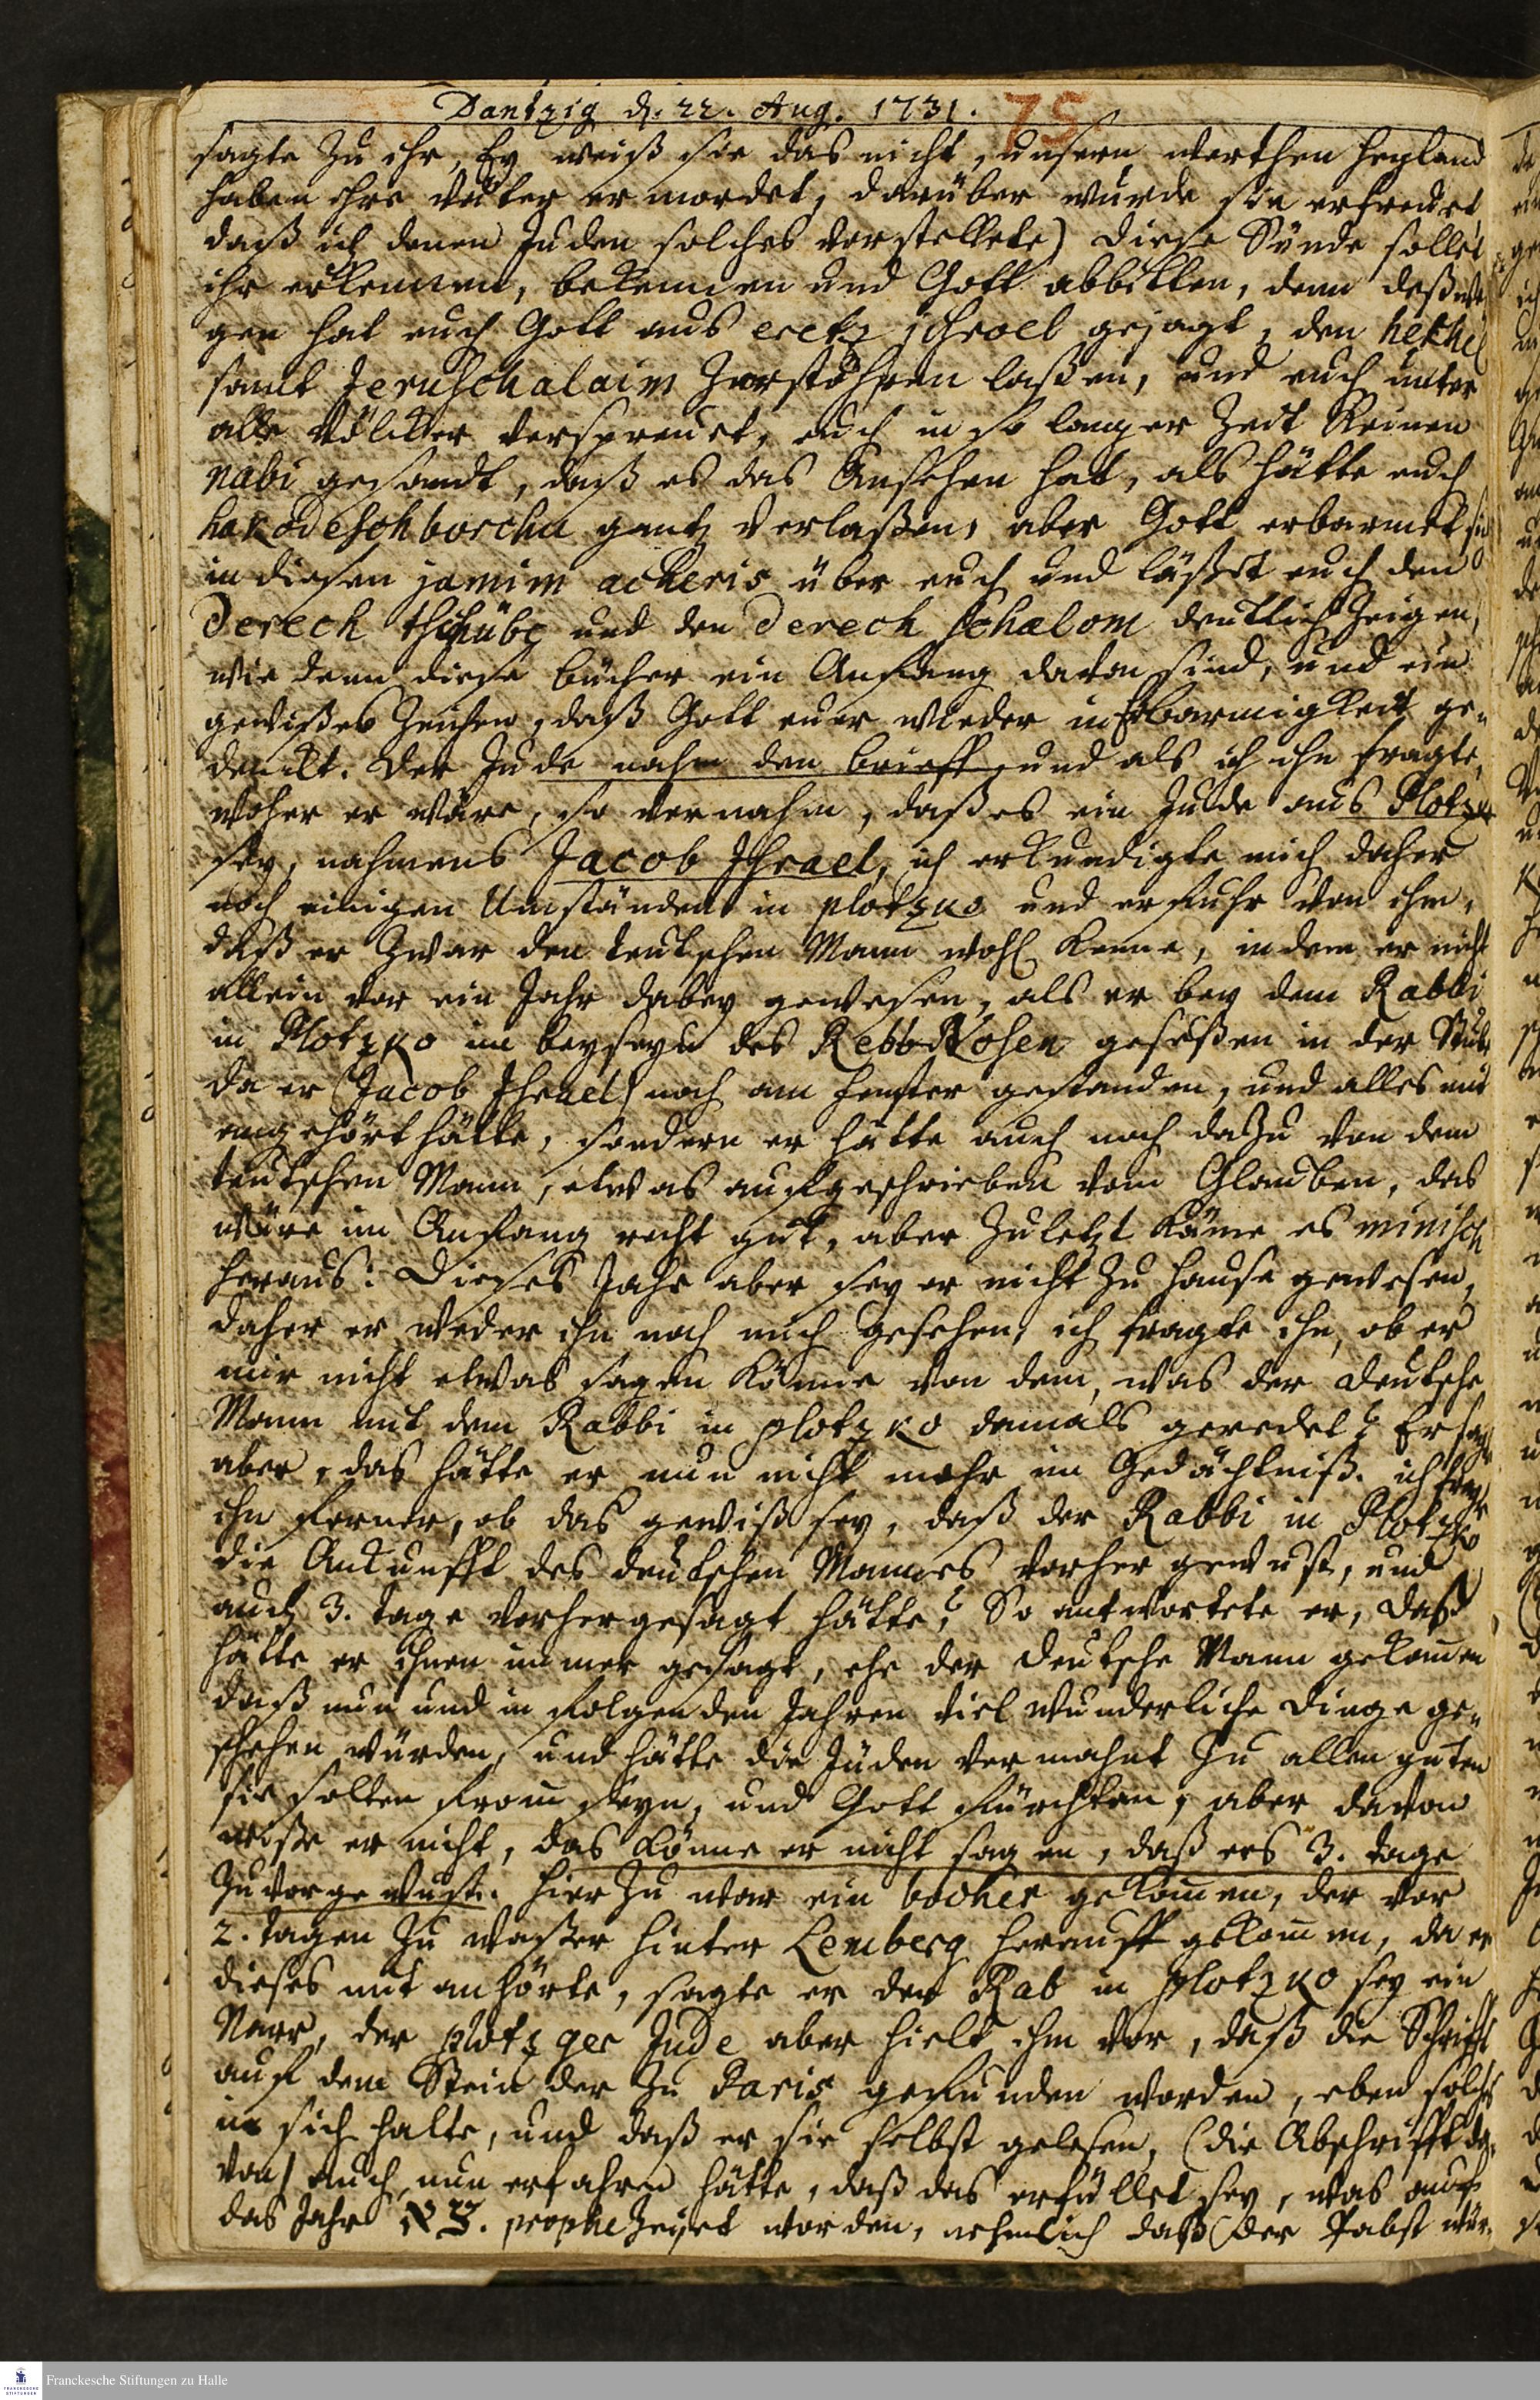 Dantzig d. 22. Aug. 1731.
75
sagte zu ihr, Ey weiß sie das nicht, unsern werthen Heyland
haben ihre Väter ermordet, darüber wurde sie erfreuet
daß ich denen Juden solches vorstellete) diese Sünde sollet
ihr erkennen, bekennen und Gott abbitten, denn deßwe
gen hat euch Gott aus eretz jsroel gejagt, den hekhel
samt Jeruschalaim zerstöhren laßen, und euch unter
alle Völcker verstreuet, euch in so langer Zeit keinen
nabi gesandt, daß es das Ansehen hat, als hätte euch
hakodeschborchu gantz verlaßen, aber Gott erbarmet sich
in diesen jamim acheris über euch und läßet euch den
Derech tschübe und den Derech schalom deutlich zeigen,
wie denn diese bücher ein Anfang davon sind, und ein
gewißes Zeichen, daß Gott euer wieder in Erbarmigkeit ge„
denckt. Der Jude nahm den brieff, und als ich ihn fragte,
woher er wäre, so vernahm, daß es ein Jude aus Plotzko
sey, nahmens Jacob Jsrael, ich erkundigte mich daher
noch einigen Umständen in plotzko und erfuhr von ihm,
daß er zwar den teutschen Mann wohl kenne, indem er nicht
allein vor ein Jahr dabey gewesen, als er bey dem Rabbi
in Plotzko im beyseyn des Rebb Nosen geseßen in der Stube
da er (Jacob Jsrael) noch am fenster gestanden, und alles mit
angehört hätte, sondern er hätte auch noch dazu von dem
teutschen Mann, etwas aufgeschrieben vom Glauben, das
wäre im Anfang recht gut, aber zuletzt käme es minisch
heraus: Dieses Jahr aber sey er nicht zu Hause gewesen,
daher er weder ihn noch mich gesehen, ich fragte ihn, ob er
mir nicht etwas sagen könne von dem, was der deutsche
Mann mit dem Rabbi in plotzko damals geredet? Er sagte
aber, das hätte er nun nicht mehr im Gedächtniß. ich fragte
ihn ferner, ob das gewiß sey, daß der Rabbi in Plotzko
die Ankunfft des deutschen Mannes vorher gewust, und
auch 3. tage vorhergesagt hätte? So antwortete er, daß
hätte er ihnen immer gesagt, ehe der deutsche Mann gekom̄en
daß nun und in folgenden Jahren viel wunderliche dinge ge„
schehen würden, und hätte die Juden vermahnt zu allen guten
sie solten from̄ seyn, und Gott fürchten, aber davon
wiße er nicht, das könne er nicht sagen, daß ers 3. tage
zuvor gewust. hierzu war ein bocher gekom̄en, der vor
2. tagen zu waßer hinter Lemberg herauff gekom̄en, da er
dieses mit anhörte, sagte er der Rab in plotzko sey ein
Narr, der plotzger Jude aber hielt ihm vor, daß die Schrifft
auf dem Stein der zu Paris gefunden worden, eben solches
in sich halte, und daß er sie selbst gelesen, (die Abschrifft da„
von) auch nun erfahren hätte, daß das erfüllet sey, was auf
das Jahr prophezeyet worden, nehmlich daß (der Pabst wür„
Franckesche Stiftungen zu Halle